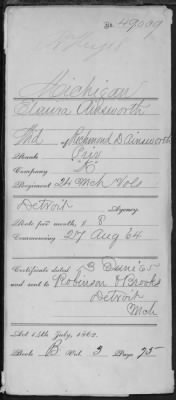 No. 49099
Michigan
Elmira Ainsworth
Wid of Richmond D Ainsworth
Rank Priv
Company "K"
Regiment 24 Mch Vols
Detroit Agency.
Rate per month, $ 8
Commencing 27 Aug 64
Certificate dated 3 June 65
and sent to Robinson & Brooks
Detroit
Mch
Act 14th July, 1862.
Book B Vol. 3 Page 75